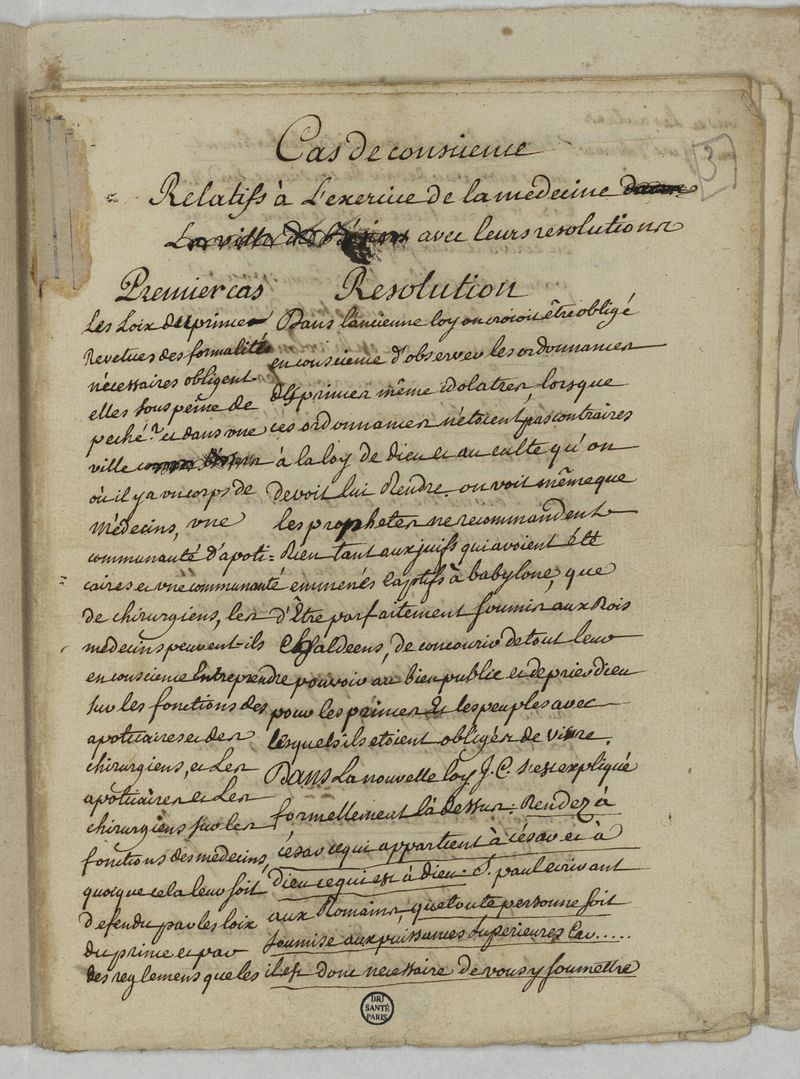 3
Cas de conscience
Relatifs à L'exercice de la medecine
La ville de avec leurs resolutions
Premier cas
Les Loix des princes
Revetues des formalités
nécessaires obligent-
elles sous peine de
peché? et dans une
ville
où il y a un corps de
Médecins, une
communauté d'apoti=
caires et une communauté
de chirurgiens, les
medecins peuvent-ils
en conscience Entreprendre
sur les fonctions des
apoticaires et des
chirurgiens, et Les
apoticaires et Les
chirurgiens sur les
fonctions des medecins,
quoique cela leur soit
Defendu par les loix
du prince et par
des reglemens que les
Resolution
Dans l'ancienne loy on croioit être obligé
en conscience d'observer les ordonnances
des princes même idolatres, lorsque
ces ordonnances n'étoient pas contraires
à la loy de dieu et au culte qu'on
devoit lui Rendre. on voit même que
les prophetes ne recommandent
Rien tant aux juifs qui avoient été
emmenés captifs à babylone, que
d'Être parfaitement soumis aux Rois
Chaldeens, de concourir de tout leur
pouvoir au bien public et de prier dieu
pour les princes Et les peuples avec
lesquels ils etoient obligés de vivre.
Dans La nouvelle loy J.C. s'est expliqué
formellement là dessus: Rendez à
césar ce qui appartient à césar et à
Dieu ce qui est à dieu. S. paul ecrivant
aux Romains, que toute personne soit
soumise aux puissances Superieures Car.....
il est donc necessaire de vous y soumettre
BIU
SANTÉ
PARIS